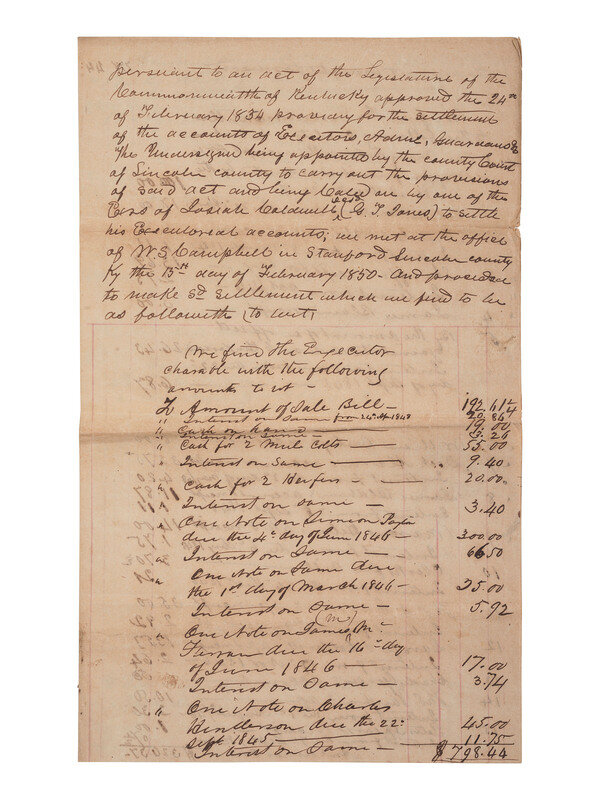 pursuant to an act of the Legislature of the
Commonwealth of Kentucky approved the 24th
of February 1834 providing for the settlement
of the accounts of Executors, Admrs, Guardians &c
The Undersigned being appointed by the county Court
of Lincoln county to carry out the provisions
of said act and being Called on by one of the
Exrs of Josiah Caldwell decd (G. T. Jones) to settle
his Executorial accounts; we met at the office
of W. S. Campbell in Stanford Lincoln county
Ky the 15th day of February 1850 - And proceeded
to make sd settlement which we find to be
as followeth (to wit)
We find the Executor
charable with the following
amounts to wit -
To Amount of Sale Bill - 192.61
" Interest on Same from 24th 1848 20.86
" Cash on hand 19.00
" Interest on Same - 3.26
" Cash for 2 Mule Colts - 55.00
" Interest on Same - 9.40
" Cash for 2 Heifers - 20.00
" Interest on Same - 3.40
" One Note on Simeon
due the 4th day of June 1846 - 300.00
" Interest on Same - 66.50
" One Note on Same due
the 1st day of March 1846 - 25.00
Interest on Same - 5.92
" One Note on James Mc
(M)
Farran due the 16th day
of June 1846 - 17.00
Interest on Same - 3.74
" One Note on Charles
Henderson due the 22
Sept 1845 45.00
Interest on Same - 11.75
$798.44